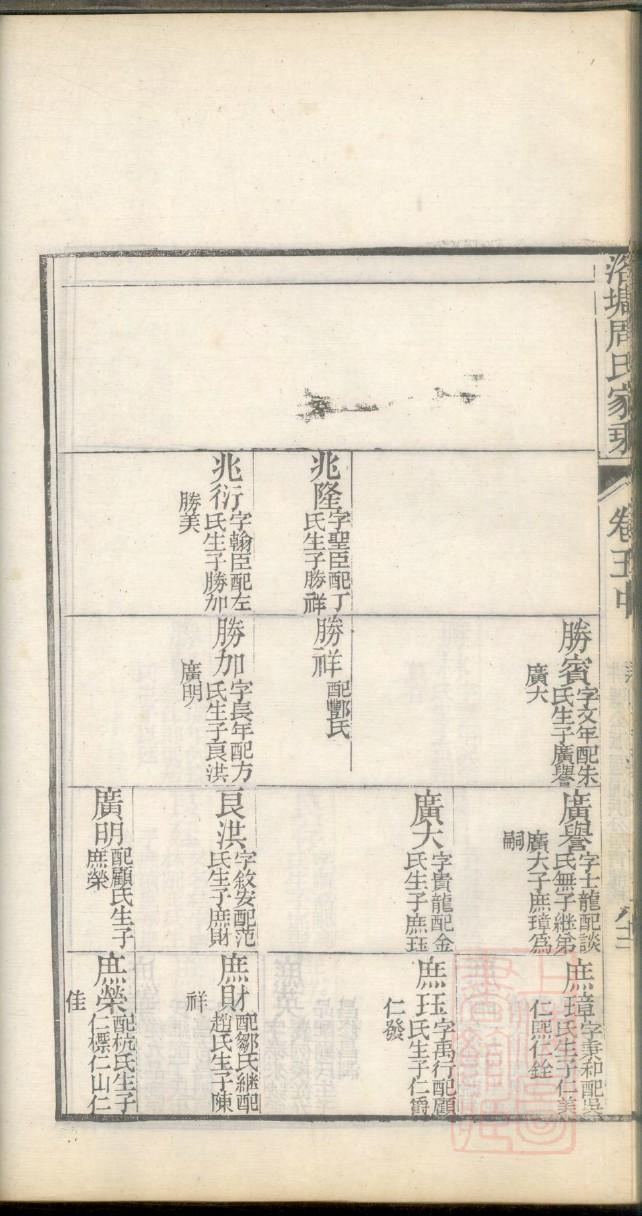 洛塘周氏家乘
卷五中
兆隆字聖臣配丁
氏生子勝祥
兆衍字翰臣配左
氏生子勝加
勝美
勝賓字文年配朱
氏生子廣譽
廣大
勝祥配酆氏
勝加字長年配方
氏生子良洪
廣明
廣譽字士龍配談
氏無子継弟
廣大子庶璋為
嗣
廣大字貴龍配金
氏生子庶珏
良洪字敘安配范
氏生子庶財
廣明配顧氏生子
庶榮
庶璋字秉和配吳
氏生子仁美
仁熙仁銓
庶珏字禹行配顧
氏生子仁爵
仁發
庶財配鄒氏継配
趙氏生子陳
祥
庶榮配杭氏生子
仁標仁山仁
佳